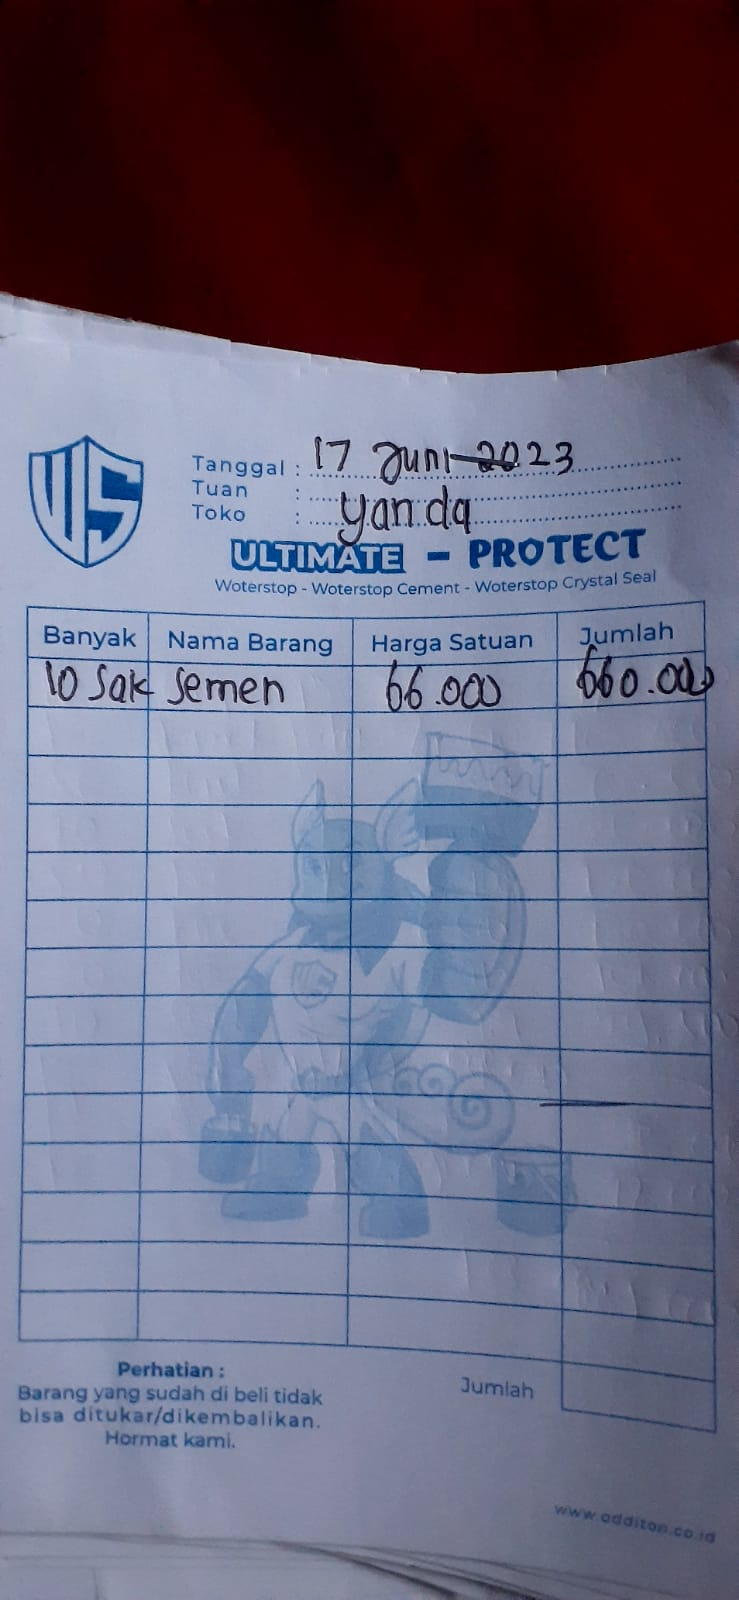 WS
Tanggal : 17 Juni 2023
Tuan :
Toko : yanda
ULTIMATE - PROTECT
Woterstop - Woterstop Cement - Woterstop Crystal Seal
Banyak Nama Barang Harga Satuan Jumlah
10 Sak Semen 66.000 660.000
Perhatian : 
Barang yang sudah di beli tidak
bisa ditukar/dikembalikan.
Hormat kami.
Jumlah
www.additon.co.id